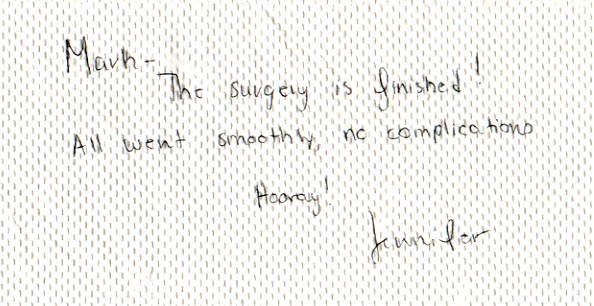 Mark-
The surgery is finished!
All went smoothly, no complications
Hooray!
Jennifer